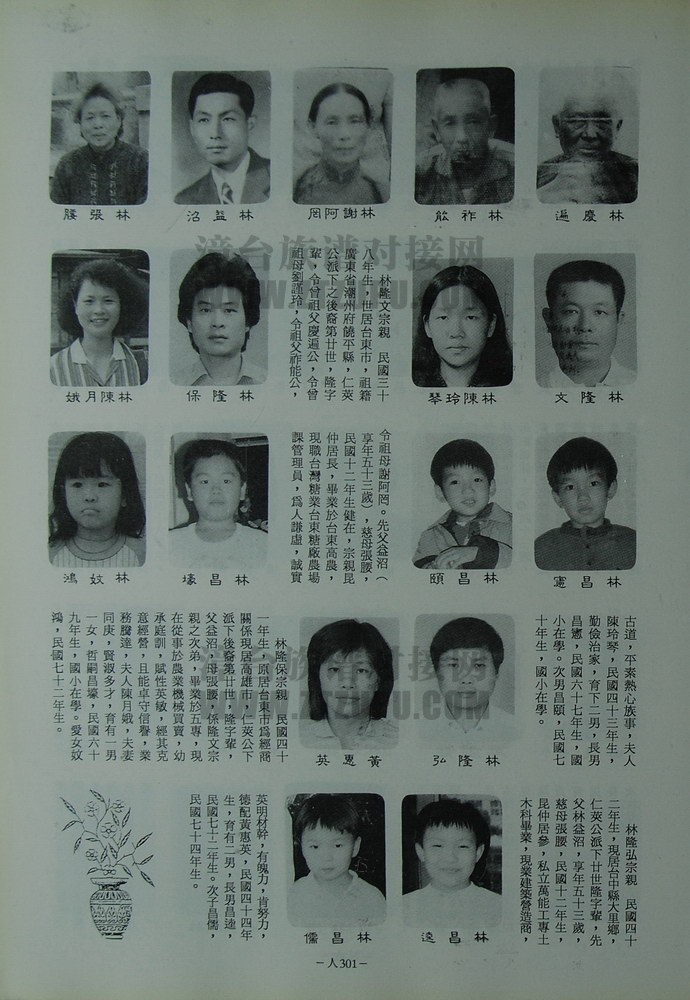 林慶遍
林祚能
林謝阿罔
林益沼
林張腰
林隆文
林陳玲琴
林隆文宗親　民國三十
八年生，世居台東市，祖籍
廣東省潮州府饒平縣，仁萊
公派下之後裔第廿世，隆字
輩，令曾祖父慶遍公，令曾
祖母劉謹玲，令祖父祚能公，
林隆保
林陳月娥
林昌憲
林昌頤
令祖母謝阿罔。先父益沼（
享年五十三歲），慈母張腰，
民國十二年生健在，宗親昆
仲居長，畢業於台東高農，
現職台灣糖業台東糖廠農場
課管理員，為人謙虛，誠實
林昌壕
林妏鴻
古道，平素熱心族事，夫人
陳玲琴，民國四十三年生，
勤儉治家，育下二男，長男
昌憲，民國六十七年生，國
小在學。次男昌頤，民國七
十年生，國小在學。
林隆弘
黃惠英
林隆保宗親　民國四十
一年生，原居台東市為經商
關係現居高雄市，仁萊公下
派下後裔第廿世，隆字輩，
父益沼，母張腰，係隆文宗
親之次弟，畢業於五專，現
在從事於農業機械買賣，幼
承庭訓，賦性英敏，經其克
意經營，且能卓守信譽，業
務騰達，夫人陳月娥，夫妻
同庚，賢淑多才，育有一男
一女，哲嗣昌壕，民國六十
九年生，國小在學。愛女妏
鴻，民國七十二年生。
林隆弘宗親　民國四十
二年生，現居台中縣大里鄉，
仁萊公派下廿世隆字輩，先
父林益沼，享年五十三歲，
慈母張腰，民國十二年生，
昆仲居參，私立萬能工專土
木科畢業，現業建築營造商，
林昌逵
林昌儒
英明材幹，有魄力，肯努力，
德配黃惠英，民國四十四年
生，育有二男，長男昌逵，
民國七十二年生。次子昌儒，
民國七十四年生。
－人301－
漳台族谱对接网